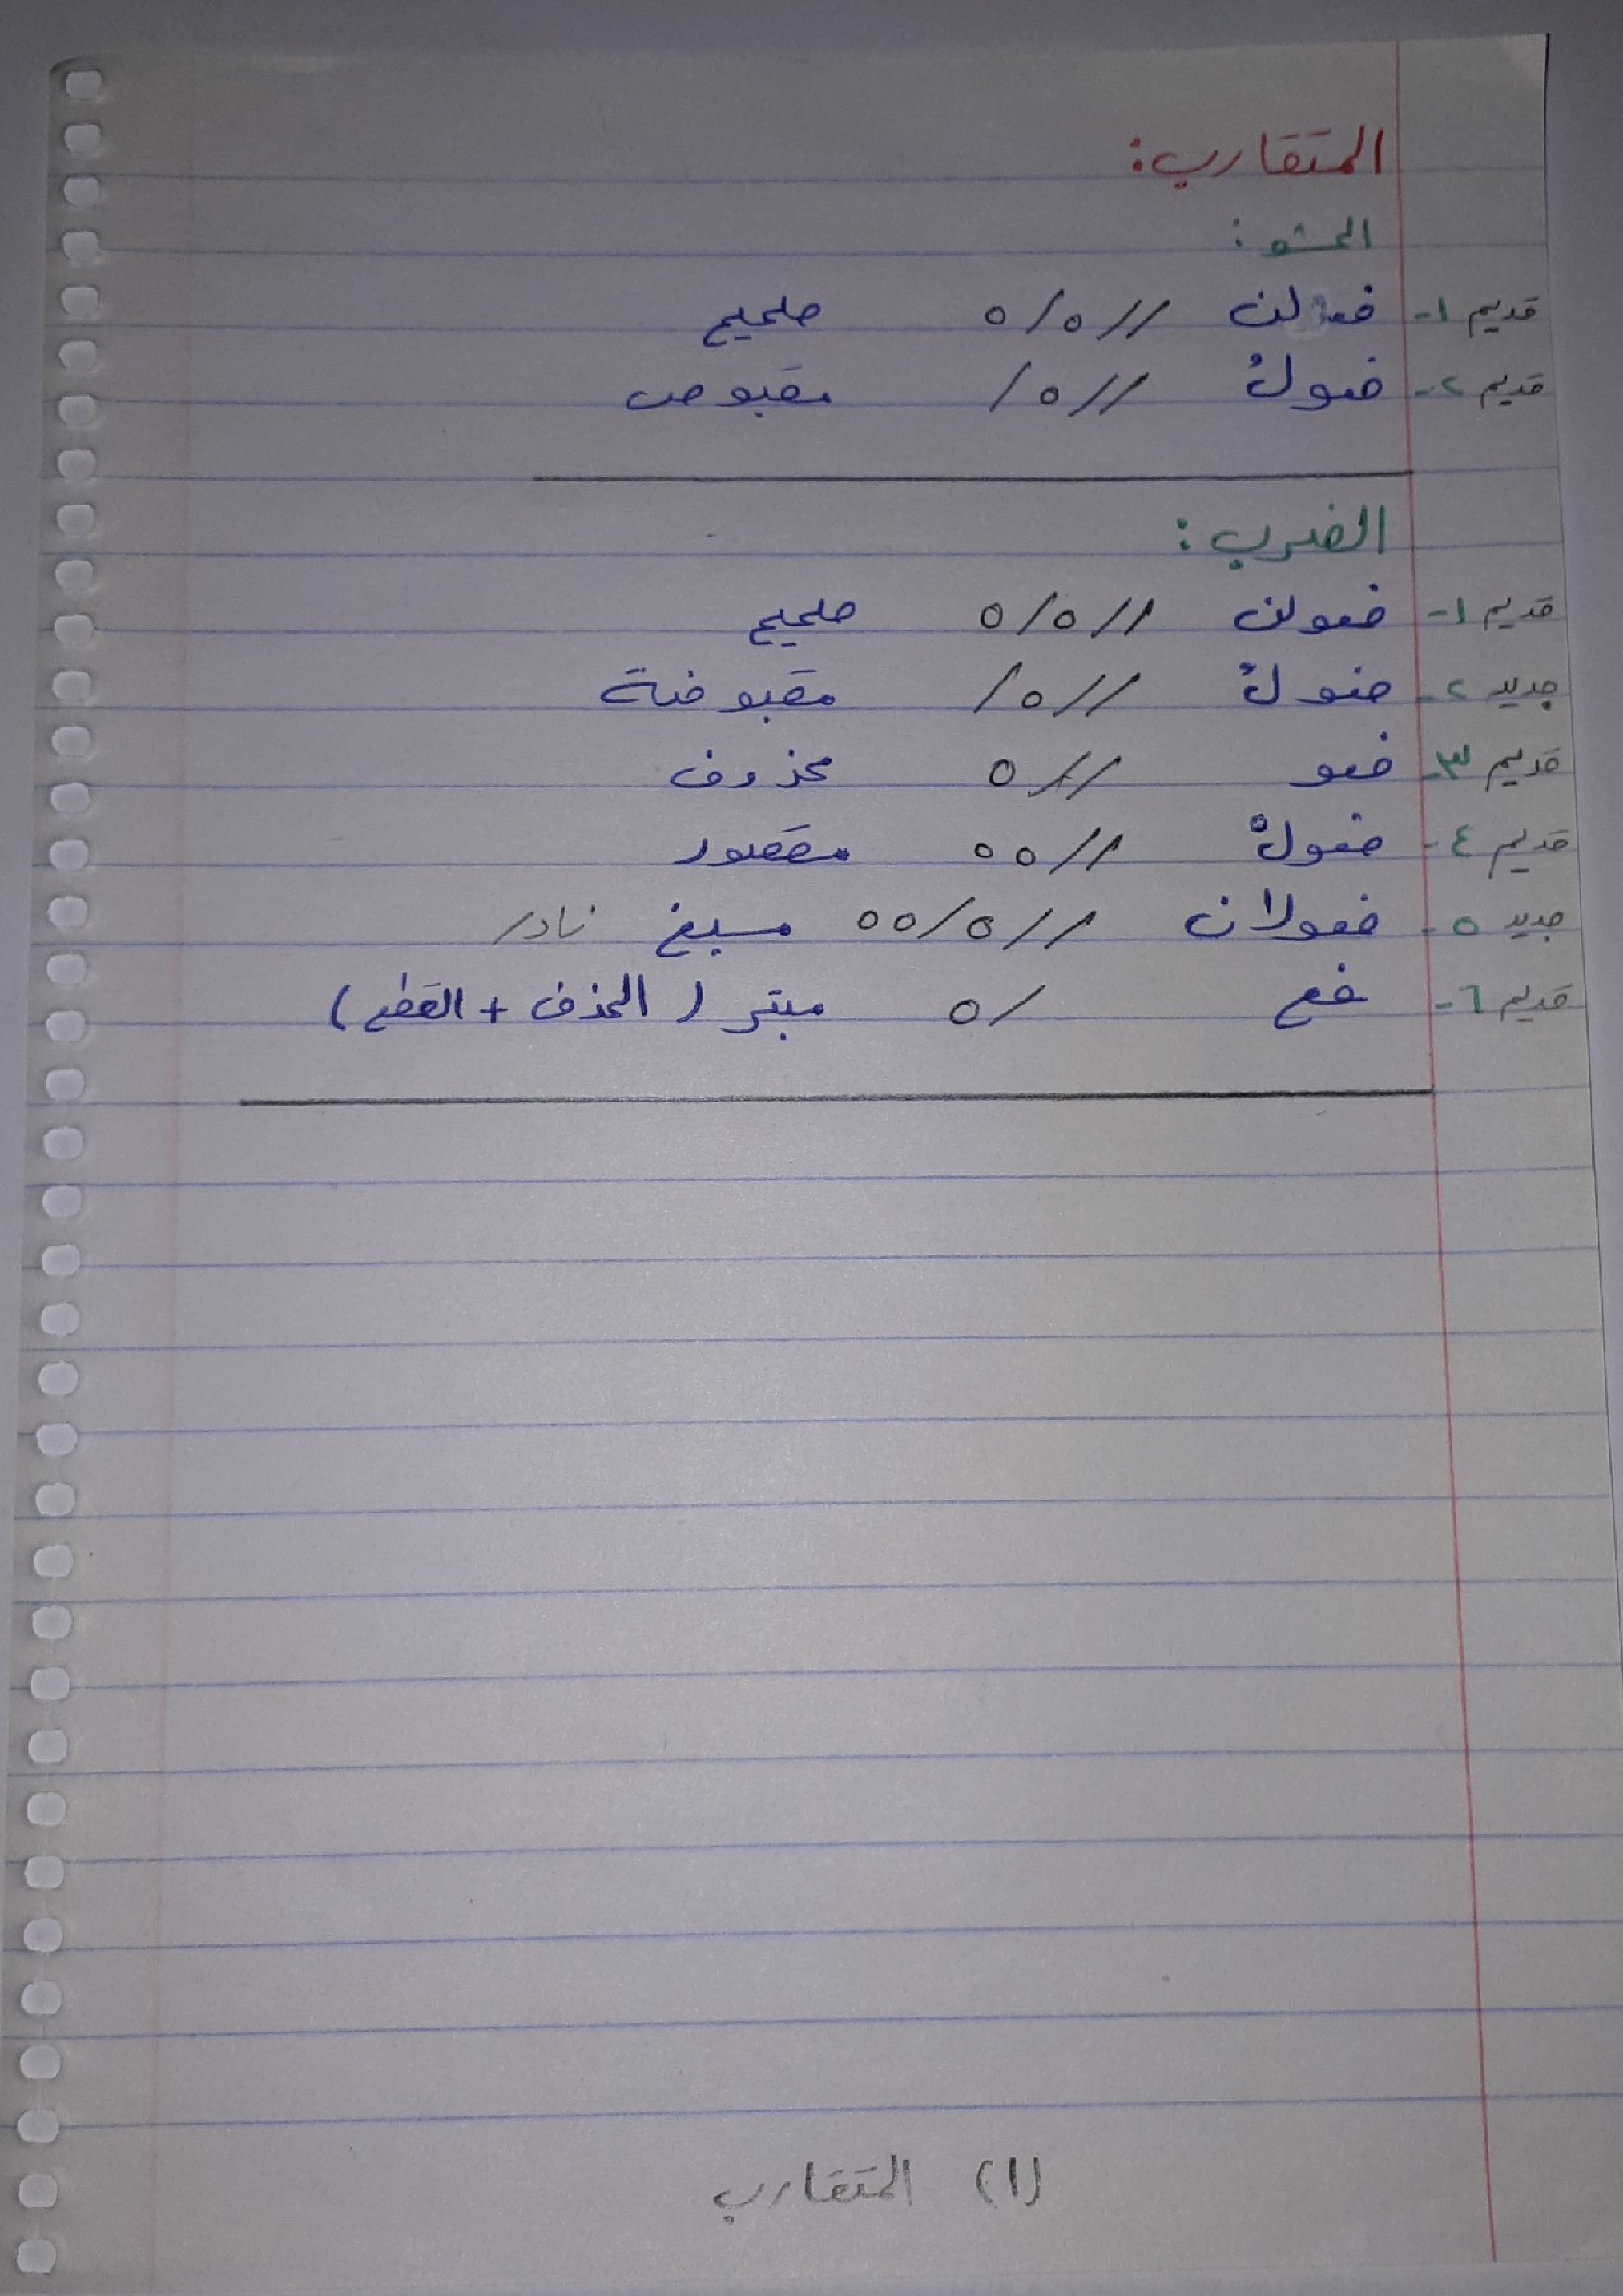 المتقارب:
الحشو:
قديم ١- فعولن //٥/٥ صحيح
قديم ٢- فعولُ //٥/ مقبوض
الضرب:
قديم ١- فعولن //٥/٥ صحيح
جديد ٢- فعولُ //٥/ مقبوضة
قديم ٣- فعو //٥ محذوف
قديم ٤- فعولْ //٥٥ مقصور
جديد ٥- فعولان //٥/٥٥ مسبغ نادر
قديم ٦- فع /٥ مبتر (الحذف + القطع)
(١) المتقارب